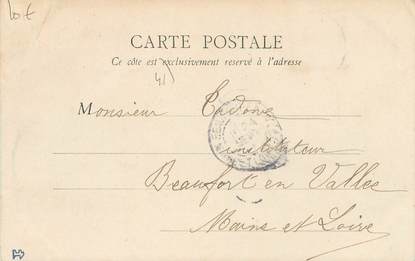 Lot
CARTE POSTALE
Ce côté est exclusivement reservé à l'adresse
41
Monsieur Cadone
instituteur
Beaufort en Vallée
Maine et Loire